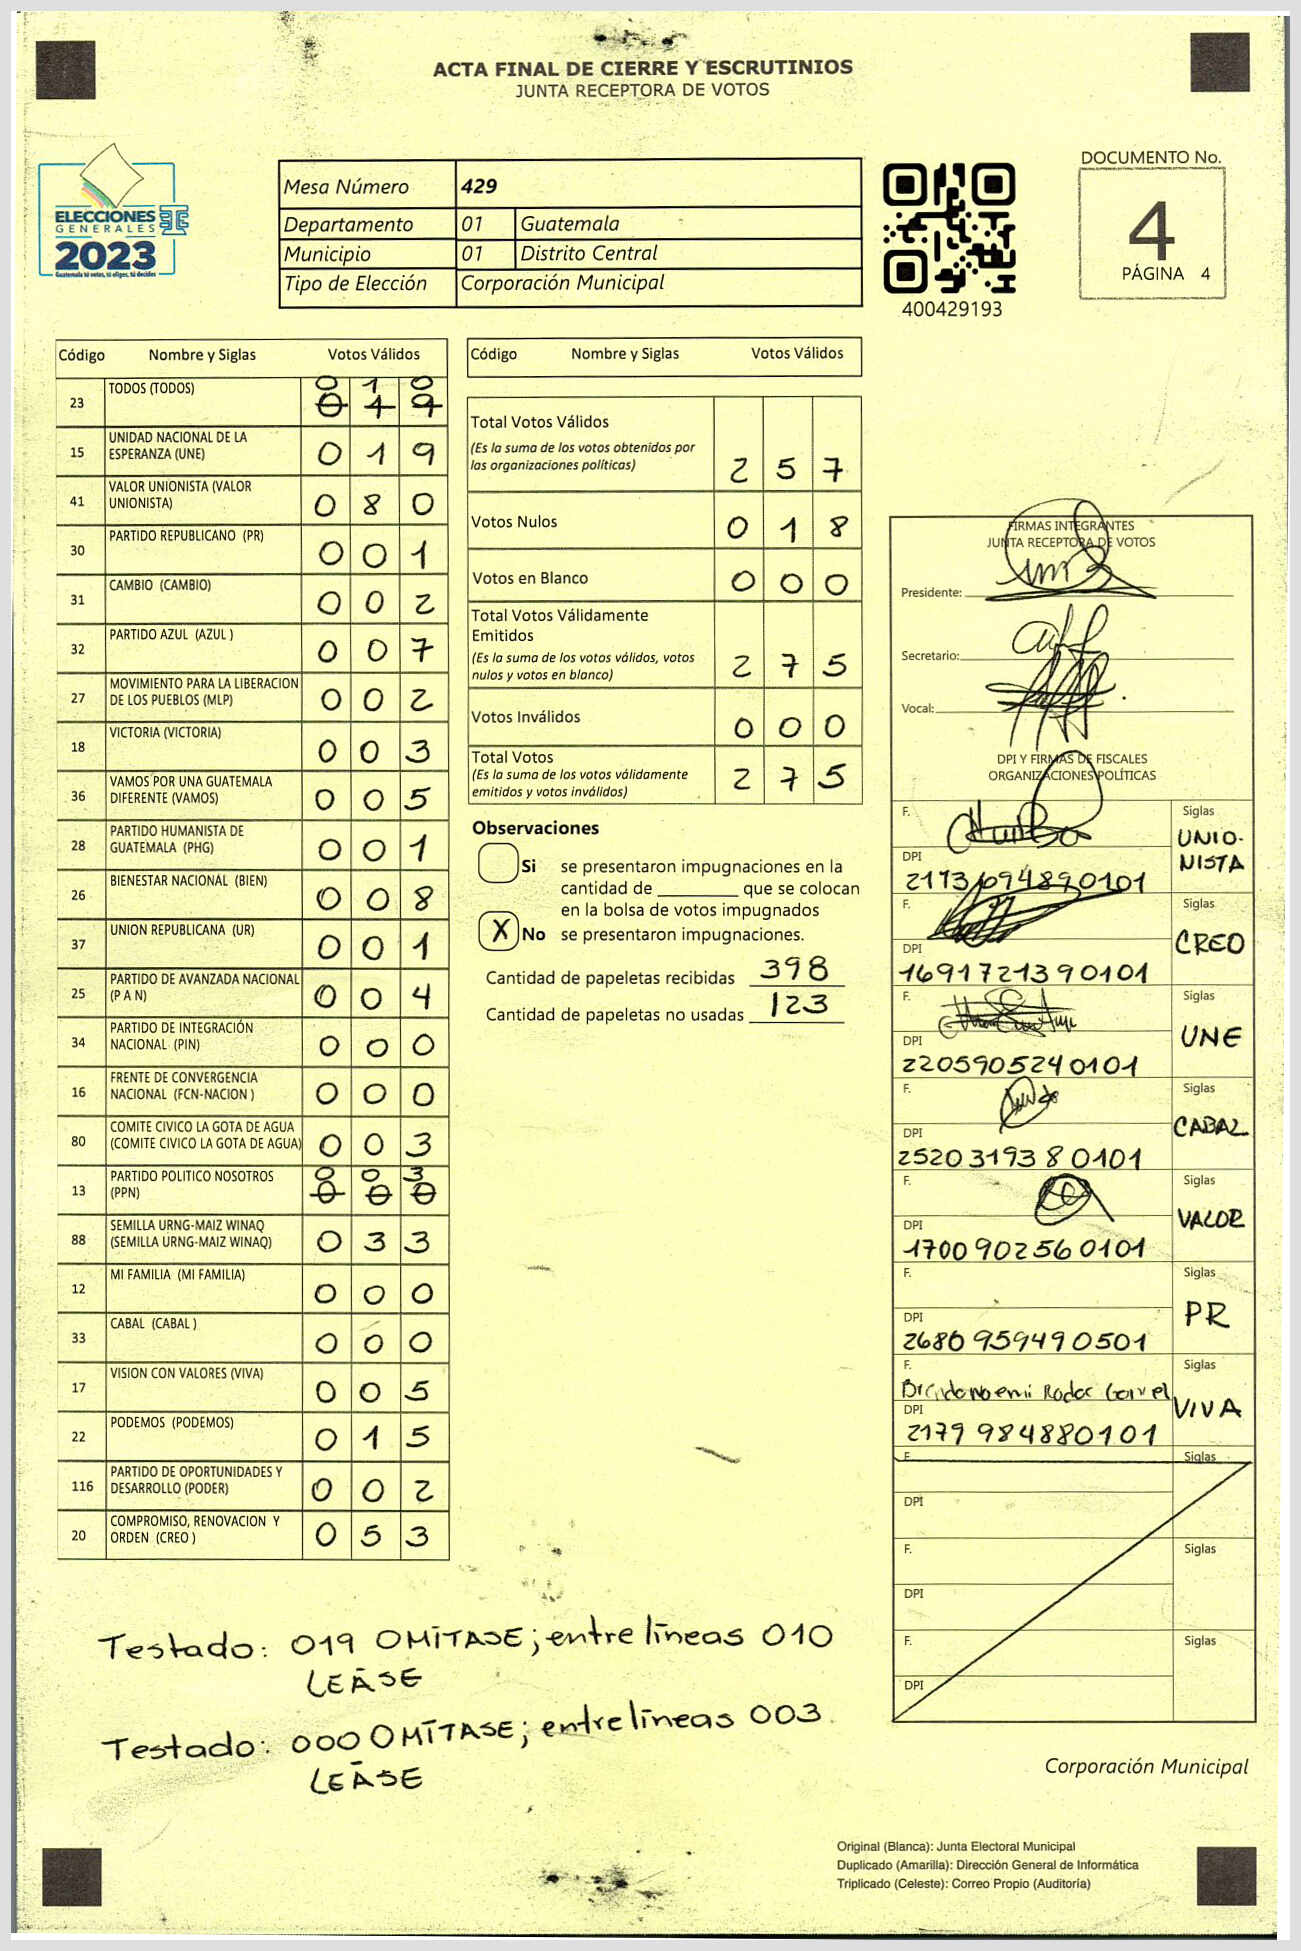 ACTA FINAL DE CIERRE Y ESCRUTINIOS
JUNTA RECEPTORA DE VOTOS
ELECCIONES
GENERALES
2023
Guatemala tú votas, tú eliges, tú decides
Mesa Número 429
Departamento 01 Guatemala
Municipio 01 Distrito Central
Tipo de Elección Corporación Municipal
400429193
DOCUMENTO No.
4
PÁGINA 4
Código Nombre y Siglas Votos Válidos
23 TODOS (TODOS) 0 1 0
0 1 9
15 UNIDAD NACIONAL DE LA
ESPERANZA (UNE) 0 1 9
41 VALOR UNIONISTA (VALOR
UNIONISTA) 0 8 0
30 PARTIDO REPUBLICANO (PR) 0 0 1
31 CAMBIO (CAMBIO) 0 0 2
32 PARTIDO AZUL (AZUL ) 0 0 7
27 MOVIMIENTO PARA LA LIBERACION
DE LOS PUEBLOS (MLP) 0 0 2
18 VICTORIA (VICTORIA) 0 0 3
36 VAMOS POR UNA GUATEMALA
DIFERENTE (VAMOS) 0 0 5
28 PARTIDO HUMANISTA DE
GUATEMALA (PHG) 0 0 1
26 BIENESTAR NACIONAL (BIEN) 0 0 8
37 UNION REPUBLICANA (UR) 0 0 1
25 PARTIDO DE AVANZADA NACIONAL
(P A N) 0 0 4
34 PARTIDO DE INTEGRACIÓN
NACIONAL (PIN) 0 0 0
16 FRENTE DE CONVERGENCIA
NACIONAL (FCN-NACION ) 0 0 0
80 COMITE CIVICO LA GOTA DE AGUA
(COMITE CIVICO LA GOTA DE AGUA) 0 0 3
13 PARTIDO POLITICO NOSOTROS 0 0 3
(PPN) 0 0 0
88 SEMILLA URNG-MAIZ WINAQ
(SEMILLA URNG-MAIZ WINAQ) 0 3 3
12 MI FAMILIA (MI FAMILIA) 0 0 0
33 CABAL (CABAL ) 0 0 0
17 VISION CON VALORES (VIVA) 0 0 5
22 PODEMOS (PODEMOS) 0 1 5
116 PARTIDO DE OPORTUNIDADES Y
DESARROLLO (PODER) 0 0 2
20 COMPROMISO, RENOVACION Y
ORDEN (CREO ) 0 5 3
Código Nombre y Siglas Votos Válidos
Total Votos Válidos
(Es la suma de los votos obtenidos por
las organizaciones políticas) 2 5 7
Votos Nulos 0 1 8
Votos en Blanco 0 0 0
Total Votos Válidamente
Emitidos
(Es la suma de los votos válidos, votos
nulos y votos en blanco) 2 7 5
Votos Inválidos 0 0 0
Total Votos
(Es la suma de los votos válidamente
emitidos y votos inválidos) 2 7 5
Observaciones
Si se presentaron impugnaciones en la
cantidad de ________ que se colocan
en la bolsa de votos impugnados
X No se presentaron impugnaciones.
Cantidad de papeletas recibidas 398
Cantidad de papeletas no usadas 123
FIRMAS INTEGRANTES
JUNTA RECEPTORA DE VOTOS
Presidente:
Secretario:
Vocal:
DPI Y FIRMAS DE FISCALES
ORGANIZACIONES POLÍTICAS
F. Siglas
UNIO-
NISTA
DPI
2173694890101
F. Siglas
CREO
DPI
1691721390101
F. Siglas
UNE
DPI
2205905240101
F. Siglas
CABAL
DPI
2520319380101
F. Siglas
VALOR
DPI
1700902560101
F. Siglas
PR
DPI
2680959490501
F. Siglas
VIVA
DPI
2179984880101
F. Siglas
DPI
F. Siglas
DPI
F. Siglas
DPI
Testado: 019 OMÍTASE; entre líneas 010
LEÁSE
Testado: 000 OMÍTASE; entre líneas 003
LEÁSE
Corporación Municipal
Original (Blanca): Junta Electoral Municipal
Duplicado (Amarilla): Dirección General de Informática
Triplicado (Celeste): Correo Propio (Auditoría)